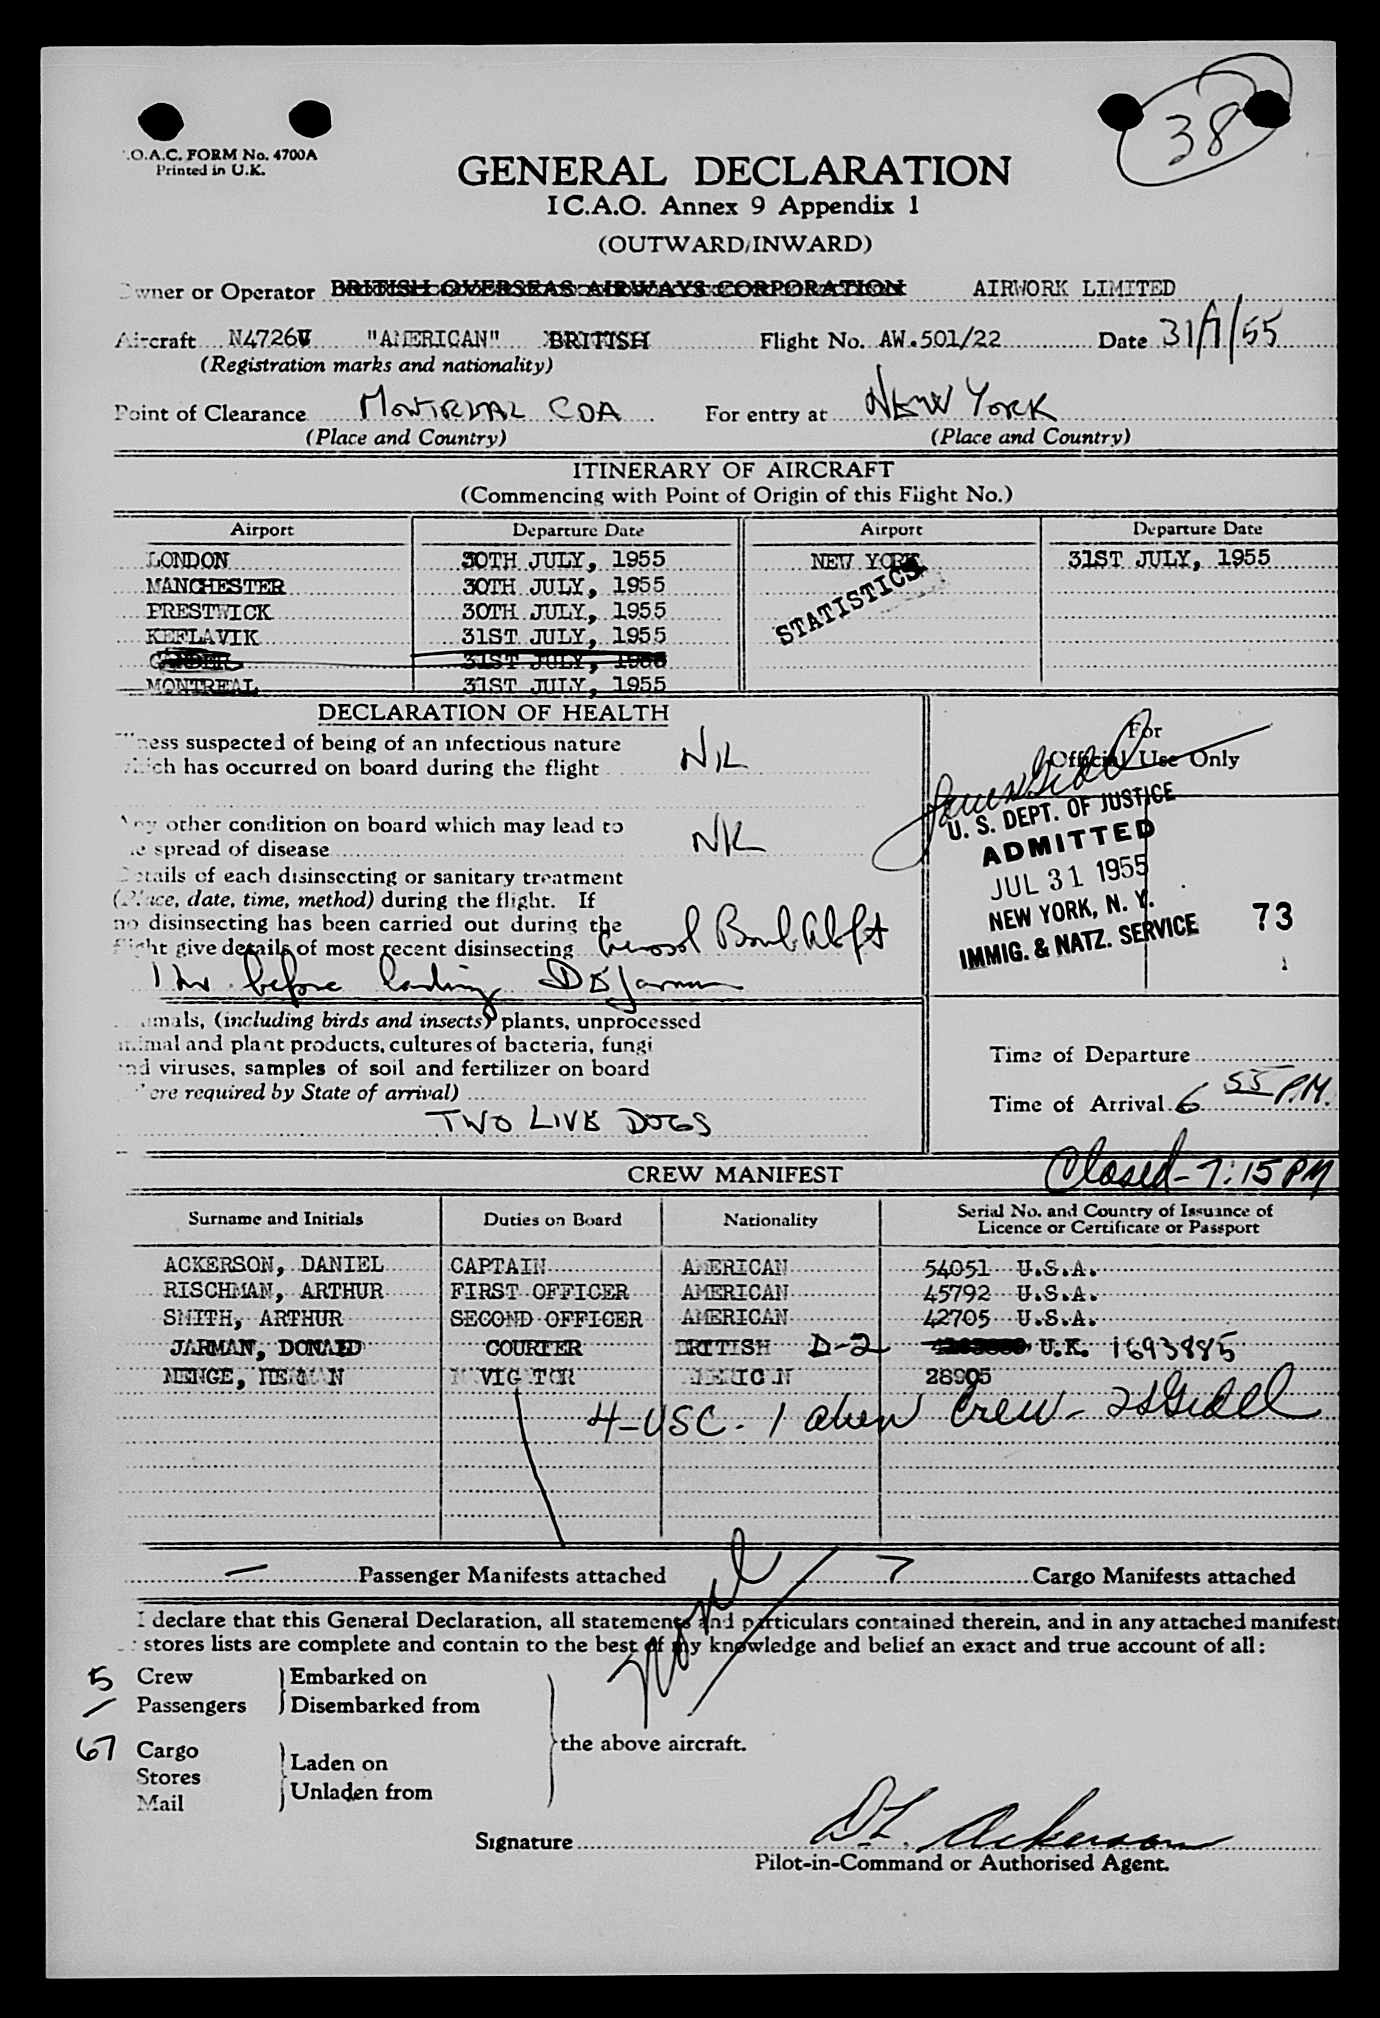 38
.O.A.C. FORM No. 4700A
Printed in U.K.
GENERAL DECLARATION
I C.A.O. Annex 9 Appendix 1
(OUTWARD/INWARD)
Owner or Operator BRITISH OVERSEAS AIRWAYS CORPORATION AIRWORK LIMITED
Aircraft N4726V "AMERICAN" BRITISH Flight No. AW.501/22 Date 31/7/55
(Registration marks and nationality)
Point of Clearance MONTREAL CDA For entry at NEW YORK
(Place and Country) (Place and Country)
ITINERARY OF AIRCRAFT
(Commencing with Point of Origin of this Flight No.)
Airport Departure Date Airport Departure Date
LONDON 30TH JULY, 1955 NEW YORK 31ST JULY, 1955
MANCHESTER 30TH JULY, 1955
PRESTWICK 30TH JULY, 1955
STATISTICS
KEFLAVIK 31ST JULY, 1955
GANDER 31ST JULY, 1955
MONTREAL 31ST JULY, 1955
DECLARATION OF HEALTH
Illness suspected of being of an infectious nature
which has occurred on board during the flight NIL
Any other condition on board which may lead to
the spread of disease NIL
Details of each disinsecting or sanitary treatment
(Place, date, time, method) during the flight. If
no disinsecting has been carried out during the
flight give details of most recent disinsecting Aerosol Bomb Aloft
1 hr before landing D B Jarman
For
Official Use Only
U. S. DEPT. OF JUSTICE
ADMITTED
JUL 31 1955
NEW YORK, N. Y.
IMMIG. & NATZ. SERVICE
73
Animals, (including birds and insects) plants, unprocessed
animal and plant products, cultures of bacteria, fungi
and viruses, samples of soil and fertilizer on board
(where required by State of arrival)
TWO LIVE DOGS
Time of Departure
Time of Arrival 6 55 P.M.
Closed - 7:15 PM
CREW MANIFEST
Surname and Initials Duties on Board Nationality Serial No. and Country of Issuance of
Licence or Certificate or Passport
ACKERSON, DANIEL CAPTAIN AMERICAN 54051 U.S.A.
RISCHMAN, ARTHUR FIRST OFFICER AMERICAN 45792 U.S.A.
SMITH, ARTHUR SECOND OFFICER AMERICAN 42705 U.S.A.
JARMAN, DONALD COURIER BRITISH D-2 U.K. 1693885
MENGE, HERMAN NAVIGATOR AMERICAN 28905
4-USC. 1 alien Crew -
Passenger Manifests attached 7 Cargo Manifests attached
I declare that this General Declaration, all statements and particulars contained therein, and in any attached manifests
stores lists are complete and contain to the best of my knowledge and belief an exact and true account of all:
5 Crew Embarked on
Passengers Disembarked from
the above aircraft.
67 Cargo Laden on
Stores
Mail Unladen from
Signature D L. Ackerson
Pilot-in-Command or Authorised Agent.